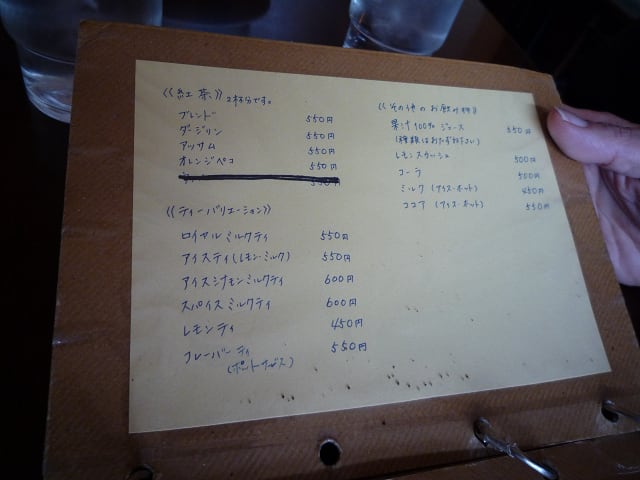 《紅茶》2杯分です。
ブレンド 550円
ダージリン 550円
アッサム 550円
オレンジペコ 550円
550円
《ティーバリエーション》
ロイヤルミルクティ 550円
アイスティ(レモン・ミルク) 550円
アイスシナモンミルクティ 600円
スパイスミルクティ 600円
レモンティ 450円
フレーバーティ 550円
(ポットサービス)
《その他のお飲み物》
果汁100%ジュース 550円
(種類はおたずね下さい)
レモンスカッシュ 500円
コーラ 500円
ミルク (アイス・ホット) 450円
ココア (アイス・ホット) 550円